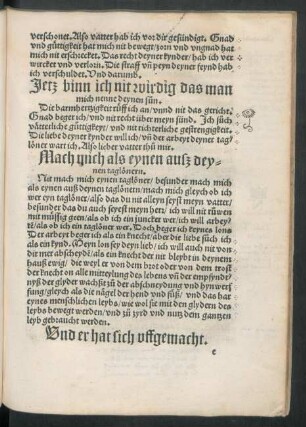 verschonet. Also vatter hab ich vor dir gesündigt. Gnad
vnd güttigkeit hat mich nit bewegt/ zorn vnd vngnad hat
mich nit erschrecket. Das recht deyner kynder/ hab ich ver
wircket vnd verlorn. Die straff vñ peyn deyner feynd hab
ich verschuldet. Vnd darumb.
Jetz binn ich nit wirdig das man
mich nenne deynen sün.
Die barmhertzigkeit rüff ich an/ vnnd nit das gericht.
Gnad beger ich/ vnd nit recht über meyn sünd. Jch süch
vätterliche güttigkeyt/ vnd nit richterliche gestrengigkeit.
Die liebe deyner kynder will ich/ vñ der arbeyt deyner tag
löner wart ich. Also lieber vatter thů mir.
Mach mich als eynen ausz dey-
nen taglönern.
Nit mach mich eynen taglöner/ besunder mach mich
als eynen ausz deynen taglönern/ mach mich gleych ob ich
wer eyn taglöner/ also das du nit alleyn seyst meyn vatter/
besunder das du auch seyst meyn herr/ ich will nit růwen
mit müssig geen/ als ob ich ein juncker wer/ ich will arbey-
tẽ/ als ob ich ein taglöner wer. Doch beger ich keyns lons
Der arbeyt beger ich als ein knecht/ aber die liebe süch ich
als ein kynd. Meyn lon sey deyn lieb/ ich will auch nit von
dir mer abscheydẽ/ als ein knecht der nit bleybt in deynem
hausz ewig/ die weyl er von dem brot oder von dem trost
der knecht on alle mitteylung des lebens vñ der empfyndt/
nysz der glyder wachszt zů der abschneydung vnd hynwerf
sung/ gleych als die nägel der hend vnd füsz/ vnd das har
eynes menschlichen leybs/ wie wol sie mit den glydern des
leybs bewegt werden/ vnd zů zyrd vnd nutz dem gantzen
leyb gebraucht werden.
Vnd er hat sich vffgemacht.
c